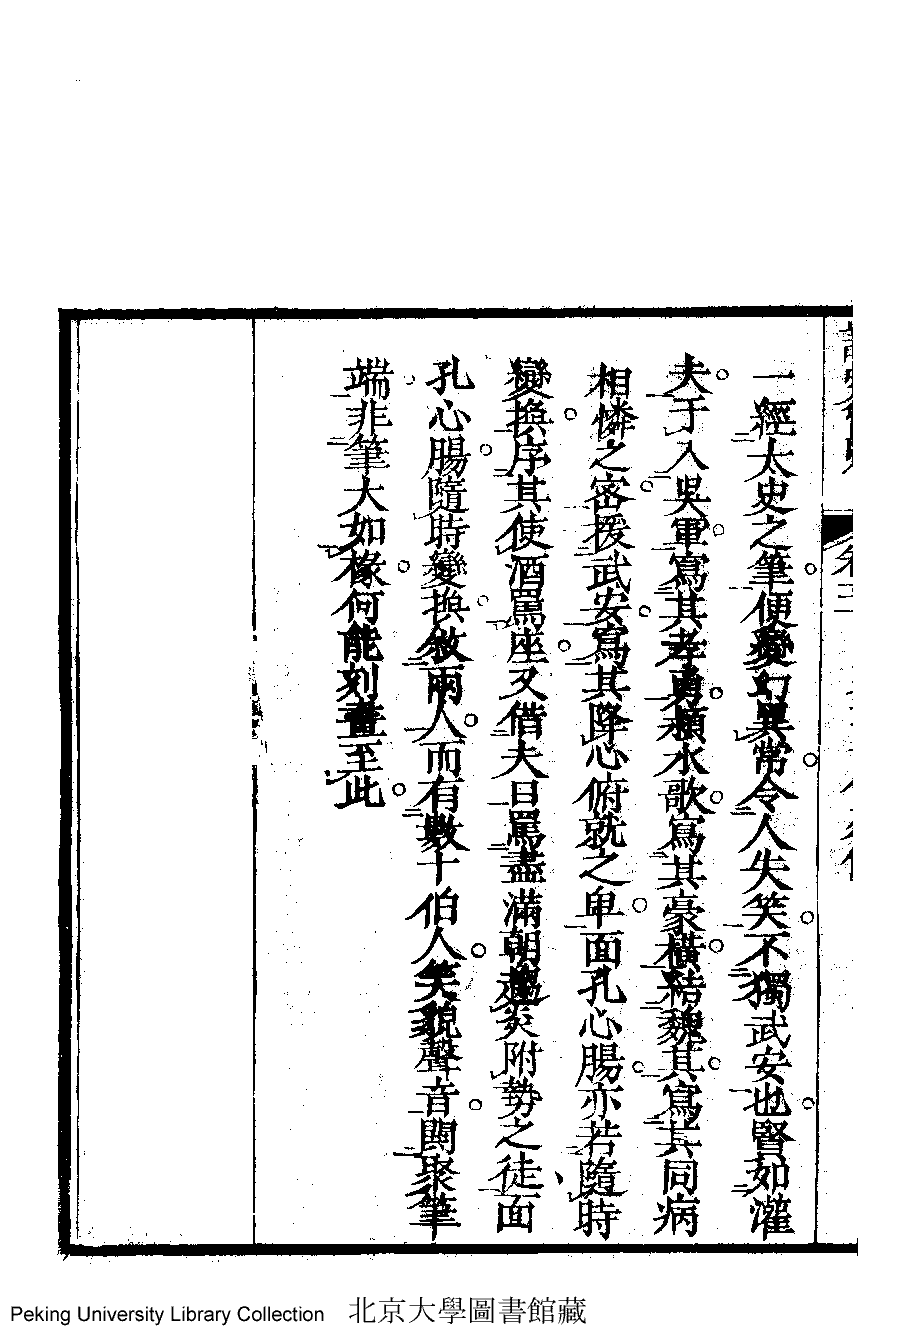 一經太史之筆便變幻異常令人失笑不獨武安也竪如灌
夫于入吳軍寫其孝勇潁水歌寫其豪橫結魏其寫其同病
相憐之密援武安寫其降心俯就之卑面孔心腸亦若隨時
變換序其使酒罵座又借夫曰罵盡滿朝趨炎附勢之徒面
孔心腸隨時變換敘兩人而有數十伯人笑貌聲音鬪聚筆
端非筆大如椽何能刻畫至此
Peking University Library Collection 北京大學圖書館藏